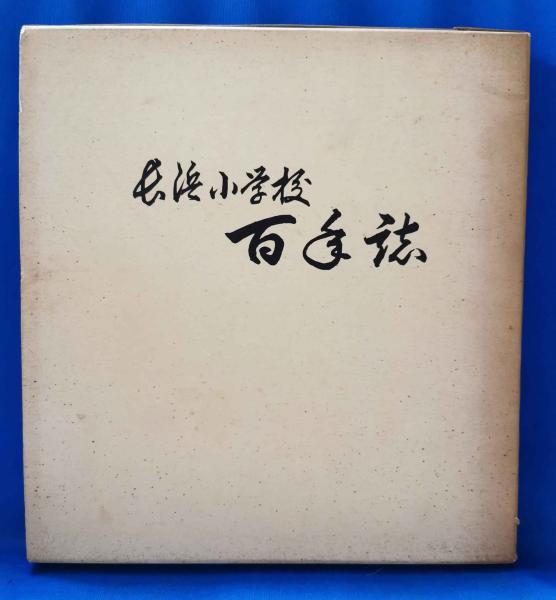 長浜小学校
百年誌